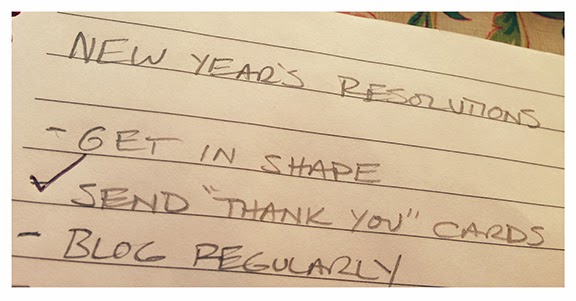 NEW YEAR'S RESOLUTIONS
- GET IN SHAPE
✓ SEND "THANK YOU" CARDS
- BLOG REGULARLY